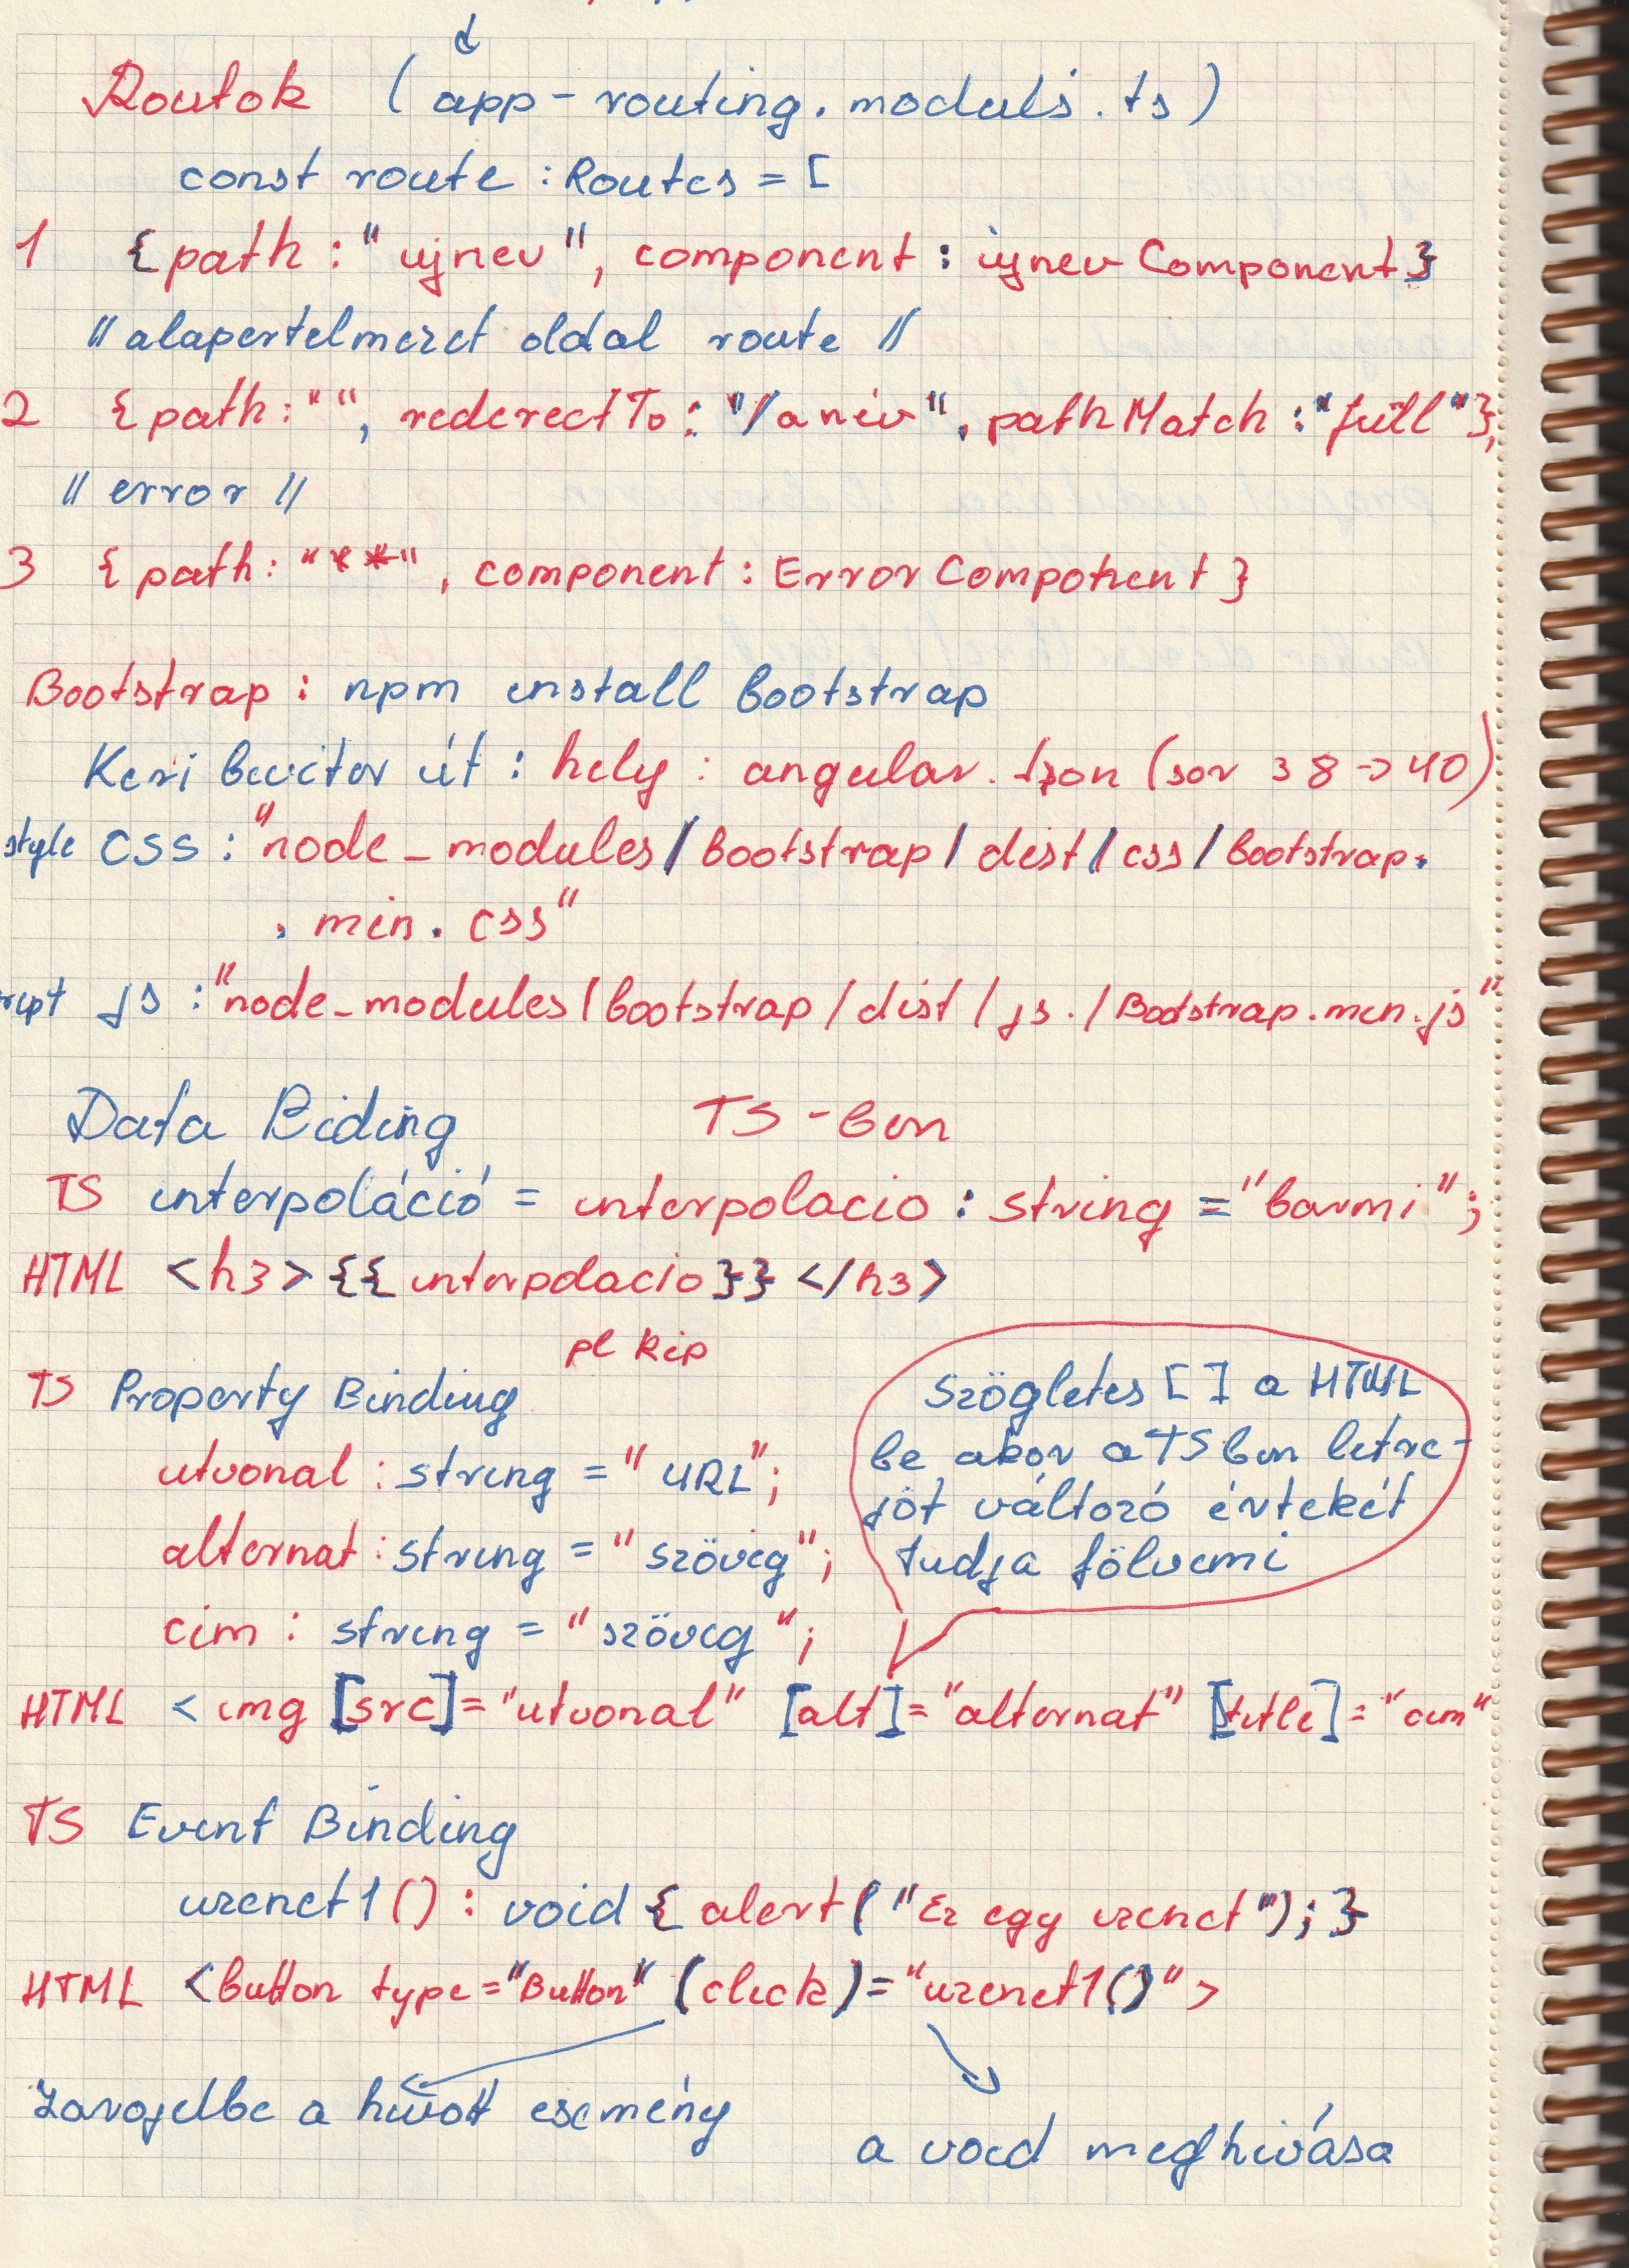 Routok (app-routing.moduls.ts)
const route : Routes = [
1 {path : "ujnev", component : ujnev Component}
// alapertelmezet oldal route //
2 {path : "", rederectTo : "/a név", pathMatch : "full"},
// error //
3 {path : "**", component : Error Component}
Bootstrap : npm install bootstrap
Kezi beviter út : hely : angular.json (sor 38 -> 40)
style CSS : "node_modules/bootstrap/dist/css/bootstrap.
.min.css"
ript js : "node_modules/bootstrap/dist/js./Bootstrap.min.js"
Data Biding TS-ben
TS interpoláció = interpolacio : string = "barmi";
HTML <h3>{{interpolacio}}</h3>
pl kép
TS Property Binding
utvonal : string = "URL";
alternat : string = "szöveg";
cim : string = "szöveg";
szögletes [ ] a HTML
be akor a TS ben letre-
jöt változó értekét
tudja fölvenni
HTML <img [src]="utvonal" [alt]="alternat" [title]="cim"
TS Event Binding
uzenet1() : void { alert("Ez egy uzenet"); }
HTML <button type="Button" (click)="uzenet1()">
Zarojelbe a hivott esemény
a void meghivása